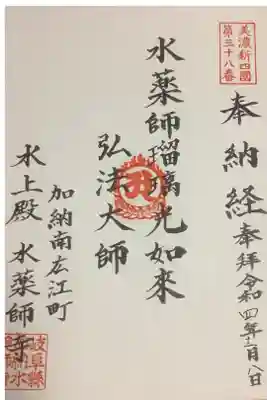 美濃新四國
第三十八番
奉納経 奉拝 令和四年三月八日
水薬師瑠璃光如來
弘法大師
加納南広江町
水上殿 水薬師寺
岐阜縣